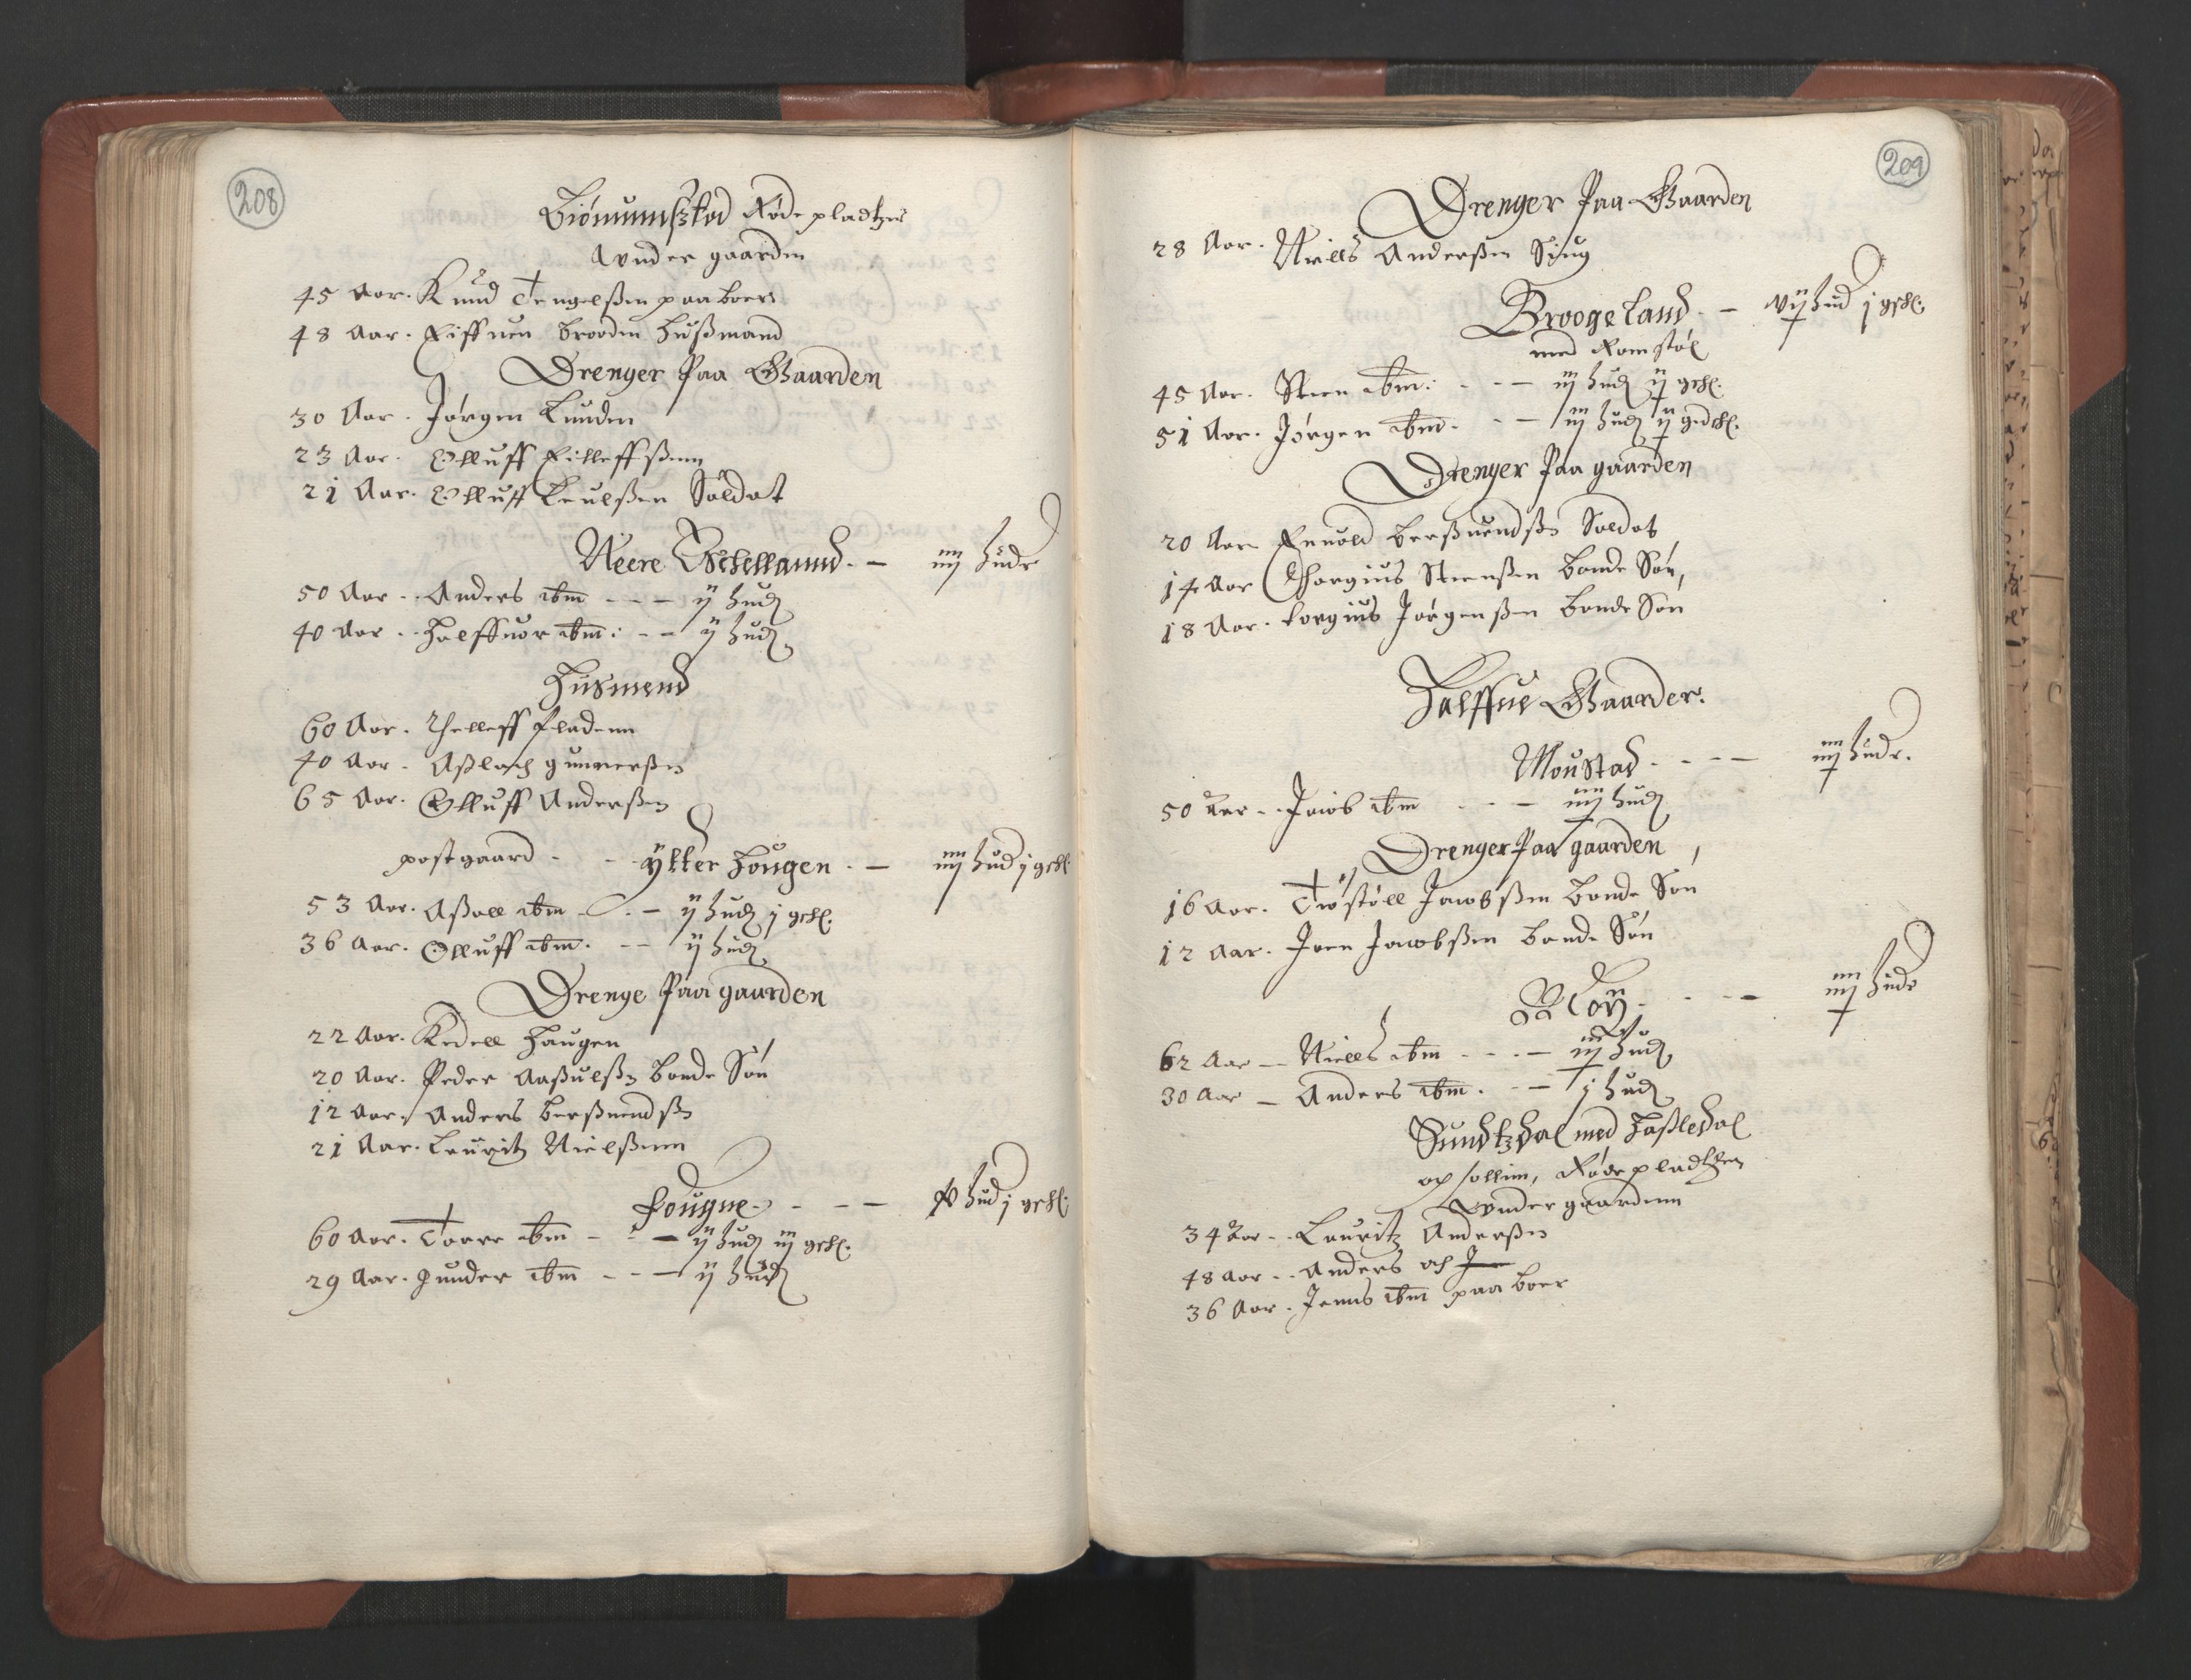 208
Biönumsstad Røde pladtzer
Wnder gaarden
45 Aar. Knud Tengelßen paaboer
48 Aar. Eiffuen Brooden Hußmand
Drenger Paa Gaarden
30 Aar. Jørgen Lunden
23 Aar. Olluff Eilleffßenn
21 Aar. Olluff Leulßen Soldat
Neere Schellannd. — iiij huder
50 Aar. Anders ibm - - - ij hud
40 Aar. Halffuor ibm: - - ij hud
Husmend
60 Aar. Thelleff Fladenn
40 Aar. Aßlach gunnerßen
65 Aar. Olluff Anderßen
postgaard - - Ytter Hougen. — iiij hud j grß.
53 Aar. Aßoll ibm - - ij hud j grß.
36 Aar. Olluff ibm. - - ij hud
Drenge Paa gaarden
22 Aar. Kedell Haugen
20 Aar. Peder Aaßulßen bonde Søn
12 Aar. Anders Berßuendßen
21 Aar. Lauritz Nielßenn
Fougne. - - - hud j grß.
60 Aar. Torre ibm - - ij hud iij grß.
29 Aar. Gunder ibm - - - ij hud
209
Drenger Paa Gaarden
28 Aar. Niels Anderßen Siug
Broogeland - vij hud j grß.
med Romstøl
45 Aar. Steen ibm: - - - iij hud ij grß.
51 Aar. Jørgen ibm. - - iij hud ij gedß.
Drenger Paa gaarden
20 Aar Enuold Berßuendßen Soldat
14 Aar Thorgius Steenßen bonde Søn,
18 Aar. Torgius Jørgenßen bonde Søn
Halffue Gaarder.
Moustad - - - iiij huder.
50 Aar - Jacob ibm - - - iiij hud
Drenger Paa gaarden
16 Aar. Trøstøll Jacobßen bonde Søn
12 Aar. Joen Jacobßen bonde Søn
Moy. - - - iiij huder
62 Aar — Niells ibm - - - iij hud
30 Aar — Anders ibm. - - j hud
Sundtzdal med Haßledal
og sollim, Røde pladtzer
Wnder gaardenn
34 Aar - - Lauritz Anderßen
48 Aar - - Anders och
36 Aar. Jenns ibm paaboer